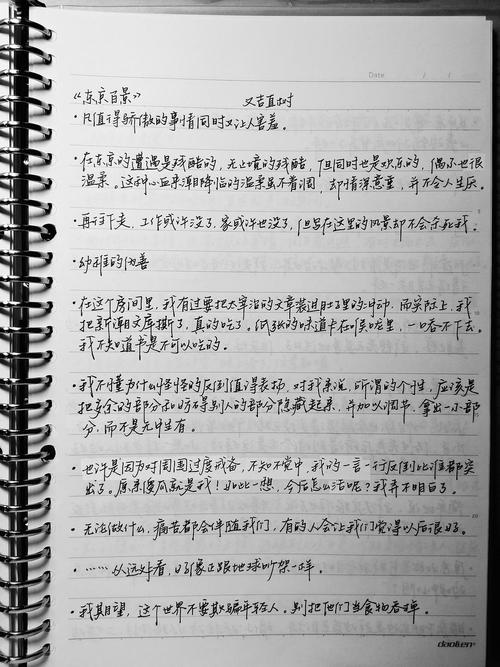 Date / /
“东京百景” 又吉直树
• 只值得骄傲的事情同时又让人害羞。
• 在东京的遭遇是残酷的,无止境的残酷,但同时也是欢乐的,偶尔也很
温柔。这种心血来潮降临的温柔虽不着调,却情深意重,并不令人生厌。
• 再往下走,工作或许没了,家或许也没了,但吕在这里的风景却不会杀死我。
• 幼稚的伪善
• 在这个房间里,我有过要把太宰治的文章装进肚子里的冲动。而实际上,我
把新潮文库撕了,真的吃了。纸张的味道卡在喉咙里,一口吞不下去。
我不知道书是不可以吃的。
• 我不懂为什么怪怪的反倒值得表扬。对我来说,所谓的个性,应该是
把多余的部分和妨碍别人的部分隐藏起来,并加以调节,拿出一小部
分,而不是无中生有。
• 也许是因为对周围过度戒备,不知不觉中,我的一言一行反倒比谁都突
出了。原来傻瓜就是我!如此一想,今后怎么活呢?我弄不明白了。
• 无论做什么,痛苦都会伴随我们,有的人会让我们觉得以后很好。
• ……从远处看,好像正跟地球吵架一样。
• 我期望,这个世界不要欺骗年轻人。别把他们当食物吞掉。
daolien